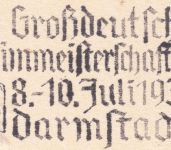 Großdeutsch
immeisterschaft
8.-10. Juli 193
darmstad